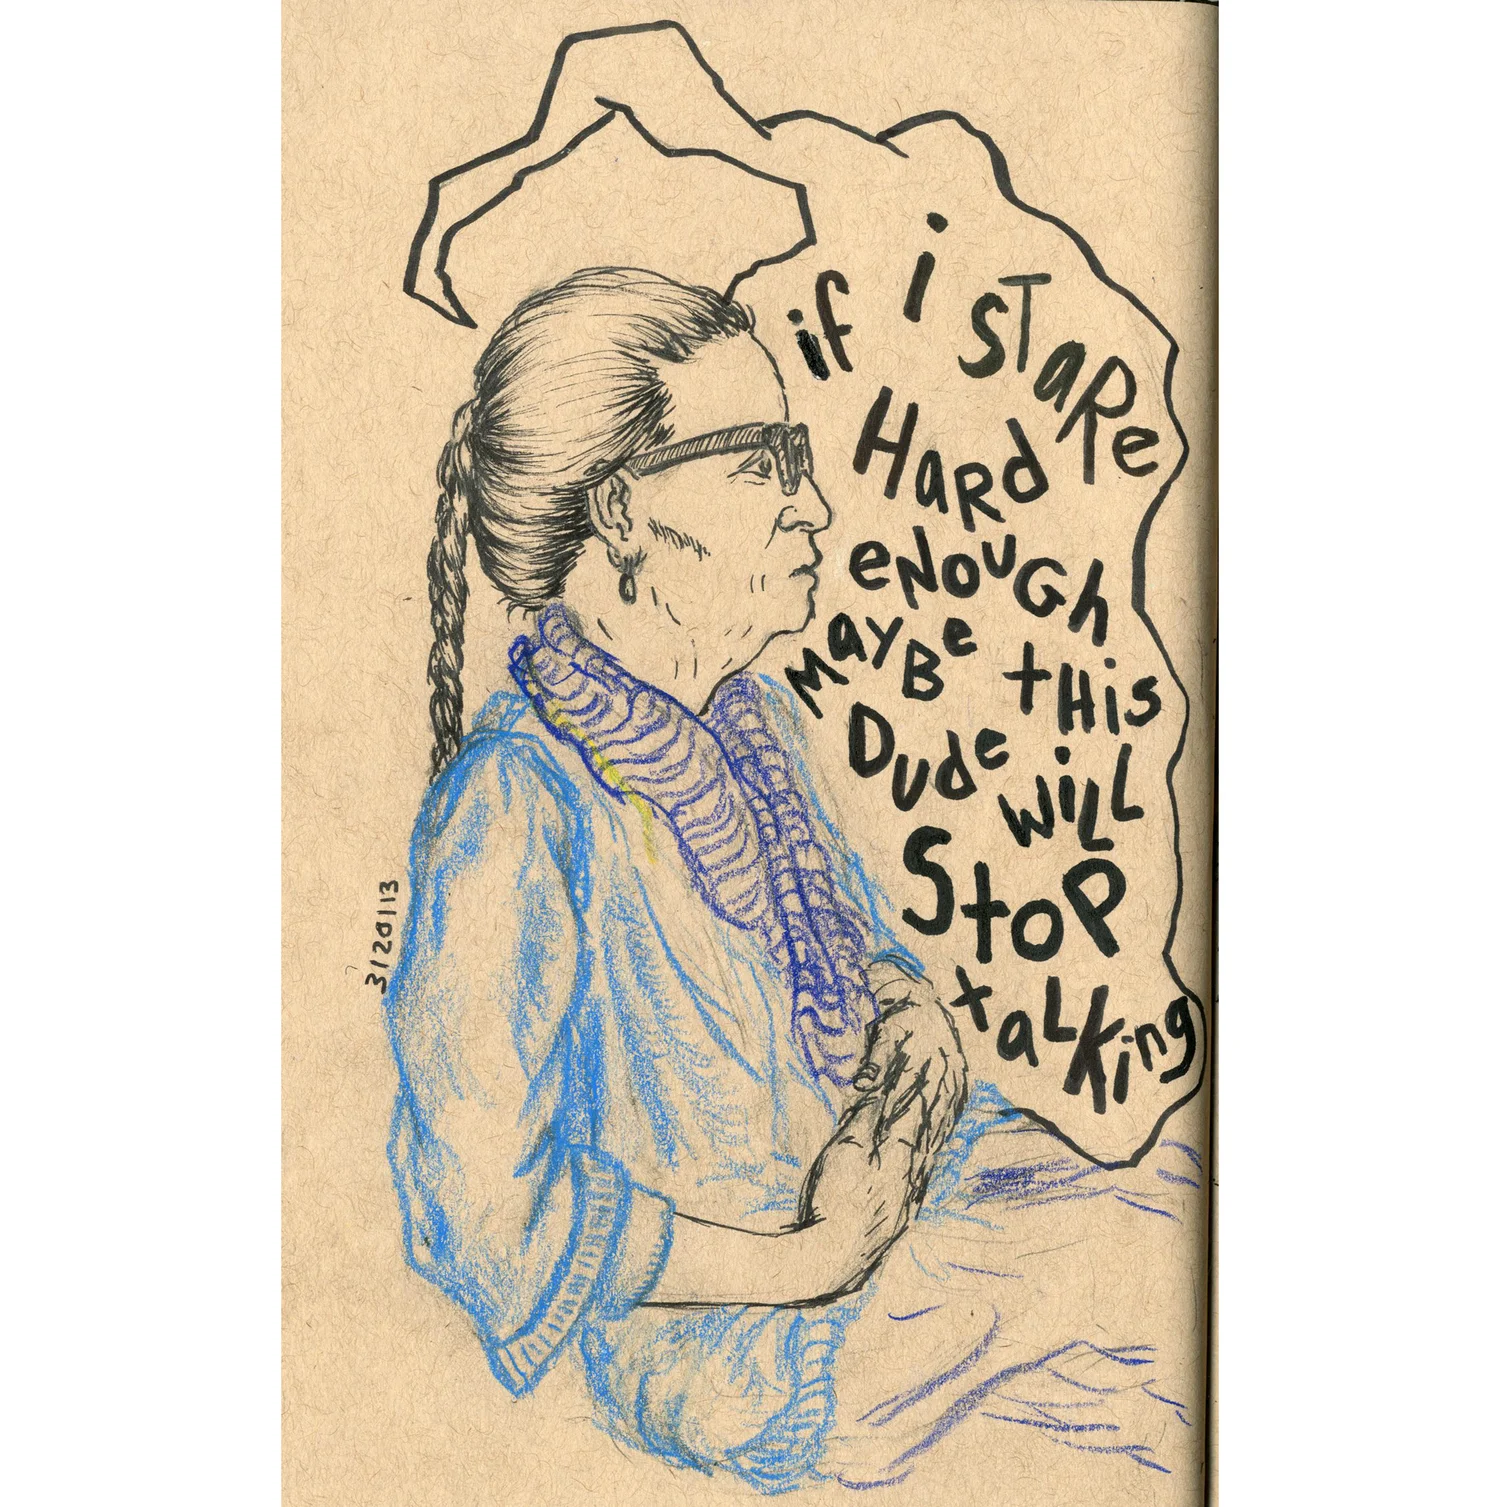 if i STaRe
HaRd
eNouGh
MayBe this
Dude will
Stop
talKing
3/20/13